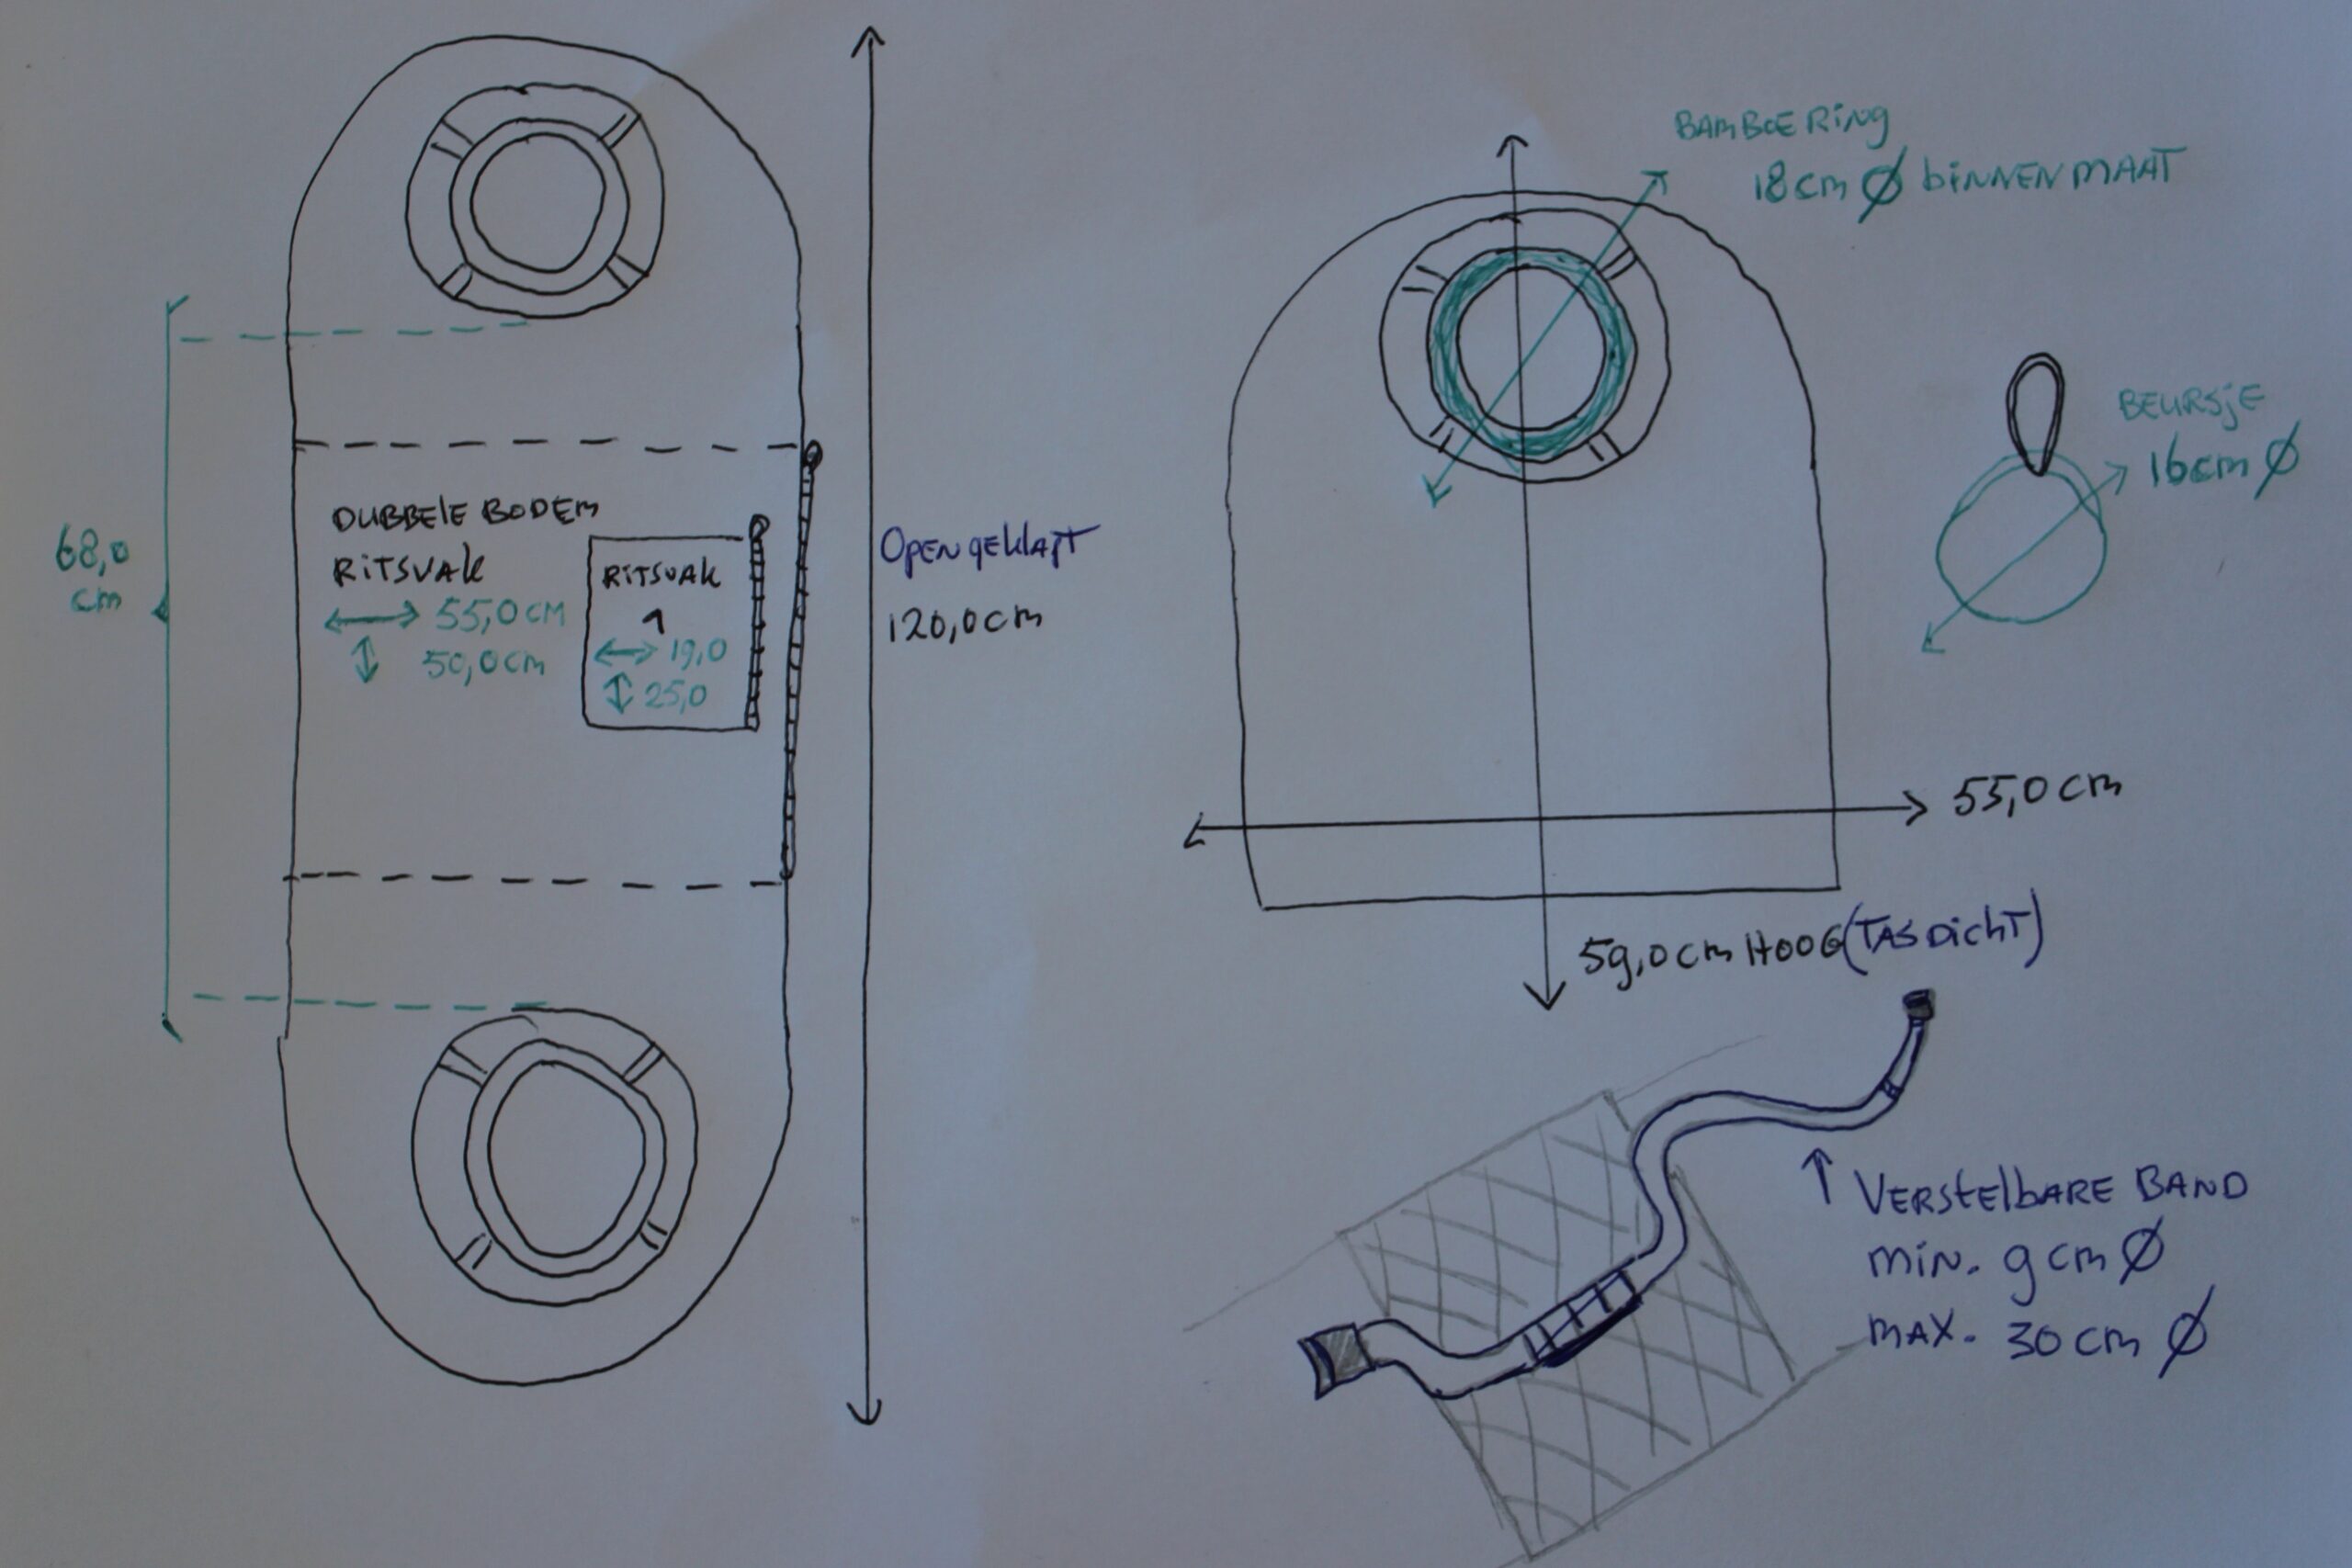 68,0
cm
DUBBELE BODEM
RITSVAK
55,0 CM
50,0 cm
RITSVAK
1
19,0
25,0
OPENGEKLAPT
120,0 cm
BAMBOE RING
18 cm Ø BINNENMAAT
BEURSJE
16 cm Ø
55,0 cm
59,0 cm HOOG (TAS DICHT)
VERSTELBARE BAND
MIN. 9 cm Ø
MAX. 30 cm Ø